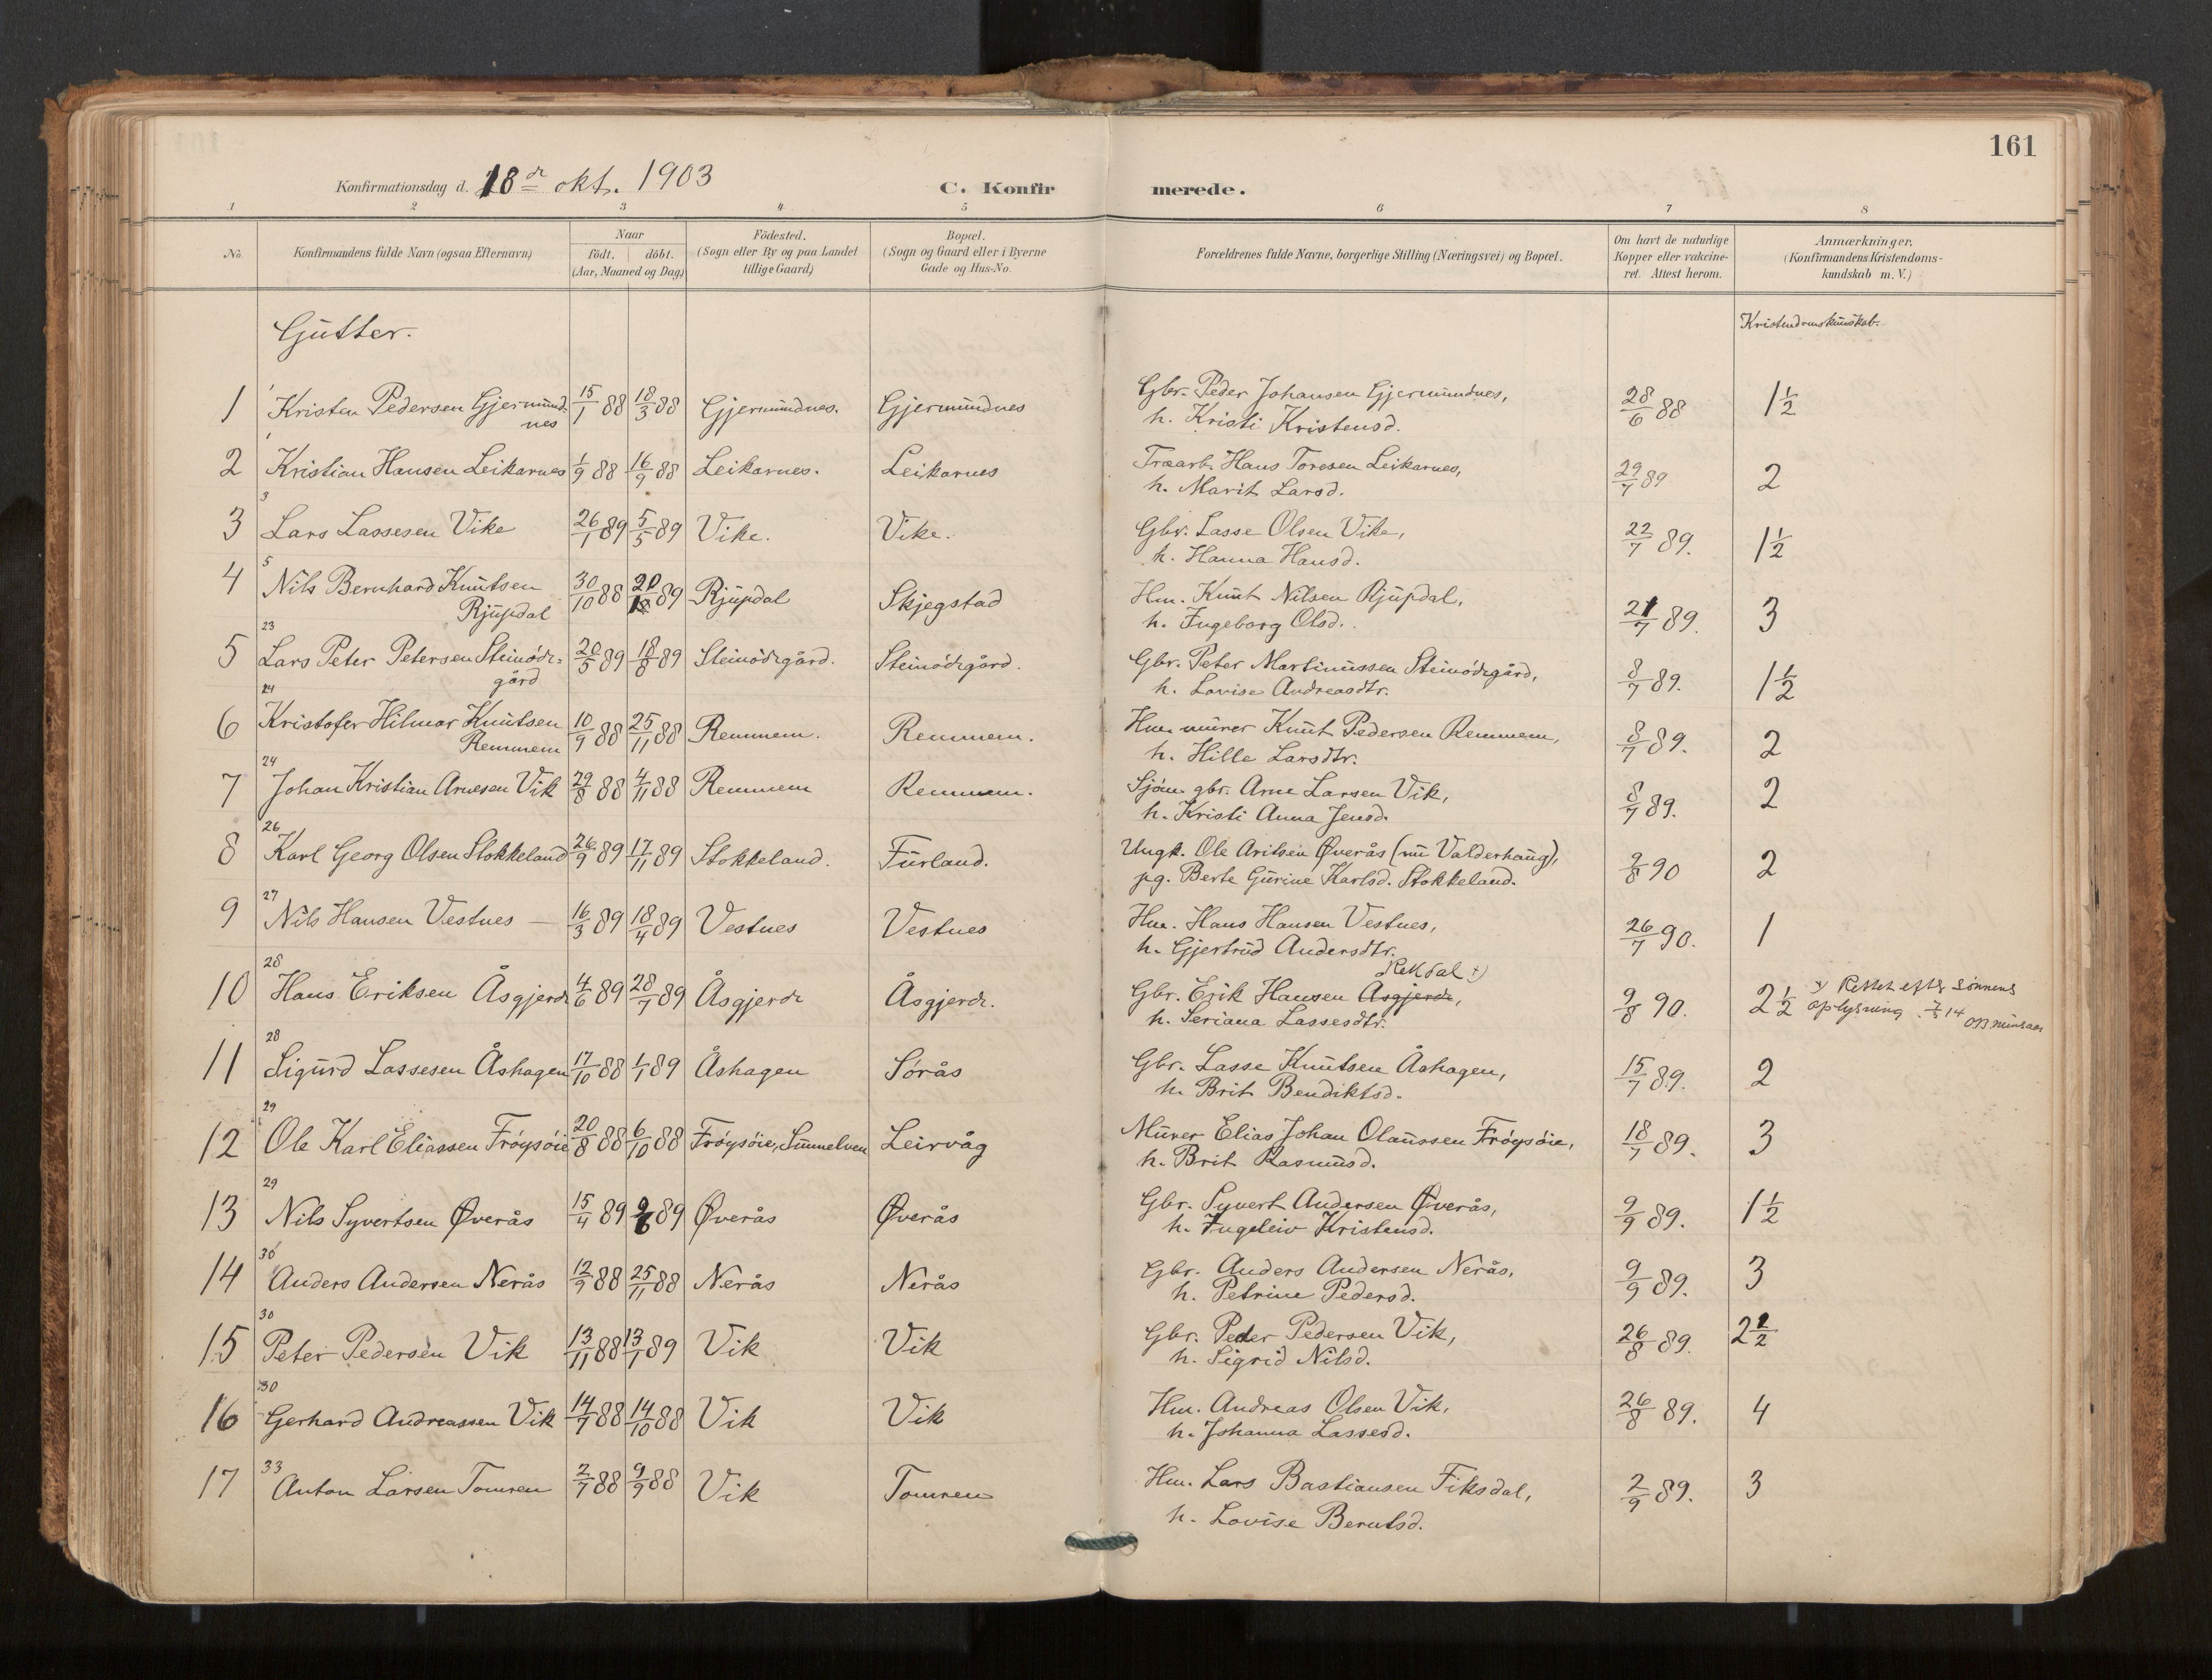 161
Konfirmationsdag d. 18de okt. 1903
C. Konfirmerede.
1 2 3 4 5 6 7 8
No. Konfirmandens fulde Navn (ogsaa Efternavn) Naar født. døbt. (Aar, Maaned og Dag) Fødested. (Sogn eller By og paa Landet tillige Gaard) Bopæl. (Sogn og Gaard eller i Byerne Gade og Hus-No. Forældrenes fulde Navne, borgerlige Stilling (Næringsvei) og Bopæl. Om havt de naturlige Kopper eller vakcineret. Attest herom. Anmærkninger. (Konfirmandens Kristendomskundskab m. V.)
Gutter.
Kristendomskunskab.
1 Kristen Pedersen Gjermundnes 15/1 88 18/3 88 Gjermundnes. Gjermundnes Gbr. Peder Johansen Gjermundnes, 28/6 88 1 1/2
h. Kristi Kristensd.
2 Kristian Hansen Leikarnes 1/9 88 16/9 88 Leikarnes. Leikarnes Træarb. Hans Toresen Leikarnes, 29/7 89 2
h. Marit Larsd.
3
3 Lars Lassesen Vike 26/1 89 5/5 89 Vike. Vike. Gbr. Lasse Olsen Vike, 22/7 89. 1 1/2
h. Hanna Hansd.
5
4 Nils Bernhard Knutsen Rjupdal 30/10 88 20/1 89 Rjupdal Skjegstad Hm. Knut Nilsen Rjupdal, 21/7 89. 3
h. Ingeborg Olsd.
23
5 Lars Peter Petersen Steinødegård 20/5 89 18/8 89 Steinødegård. Steinødegård. Gbr. Peter Martinussen Steinødegård, 8/7 89. 1 1/2
h. Lovise Andreasdtr.
24
6 Kristofer Hilmar Knutsen Remmem 10/9 88 25/11 88 Remmem. Remmem. Hm. murer Knut Pedersen Remmem, 8/7 89. 2
h. Hille Larsdtr.
24
7 Johan Kristian Arnesen Vik 29/8 88 4/11 88 Remmem Remmem. Sjøm. gbr. Arne Larsen Vik, 8/7 89. 2
h. Kristi Anna Jensd.
26
8 Karl Georg Olsen Stokkeland 26/9 89 17/11 89 Stokkeland. Furland. Ungk. Ole Aritsen Øverås (nu Valderhaug), 9/8 90 2
pg. Berte Gurine Karlsd. Stokkeland.
27
9 Nils Hansen Vestnes — 16/3 89 18/4 89 Vestnes Vestnes Hm. Hans Hansen Vestnes, 26/7 90. 1
h. Gjertrud Andersdtr.
28
Rekdal x)
10 Hans Eriksen Åsgjerde 4/6 89 28/7 89 Åsgjerde Åsgjerde. Gbr. Erik Hansen Åsgjerde, 9/8 90. 2 1/2 x) Rettet efter sönnens
h. Seriana Lassesdtr. oplysning 7/3 14
28
11 Sigurd Lassesen Åshagen 17/10 88 1/1 89 Åshagen Sørås Gbr. Lasse Knutsen Åshagen, 15/7 89. 2
h. Brit Bendiktsd.
29
12 Ole Karl Eliassen Frøysøie 20/8 88 6/10 88 Frøysøie, Sunnelven Leirvåg Murer Elias Johan Olaussen Frøysøie, 18/7 89. 3
h. Brit Rasmusd.
29
13 Nils Syvertsen Øverås 15/4 89 9/6 89 Øverås Øverås Gbr. Syvert Andersen Øverås, 9/9 89. 1 1/2
h. Ingeleiv Kristensd.
30
14 Anders Andersen Nerås 12/9 88 25/11 88 Nerås Nerås Gbr. Anders Andersen Nerås, 9/9 89. 3
h. Petrine Pedersd.
30
15 Peter Pedersen Vik 13/11 88 13/1 89 Vik Vik Gbr. Peder Pedersen Vik, 26/8 89. 2 1/2
h. Sigrid Nilsd.
30
16 Gerhard Andreassen Vik 14/7 88 14/10 88 Vik Vik Hm. Andreas Olsen Vik, 26/8 89. 4
h. Johanna Lassesd.
33
17 Anton Larsen Tomren 2/7 88 9/9 88 Vik Tomren Hm. Lars Bastiansen Fiksdal, 2/9 89. 3
h. Lovise Berntsd.